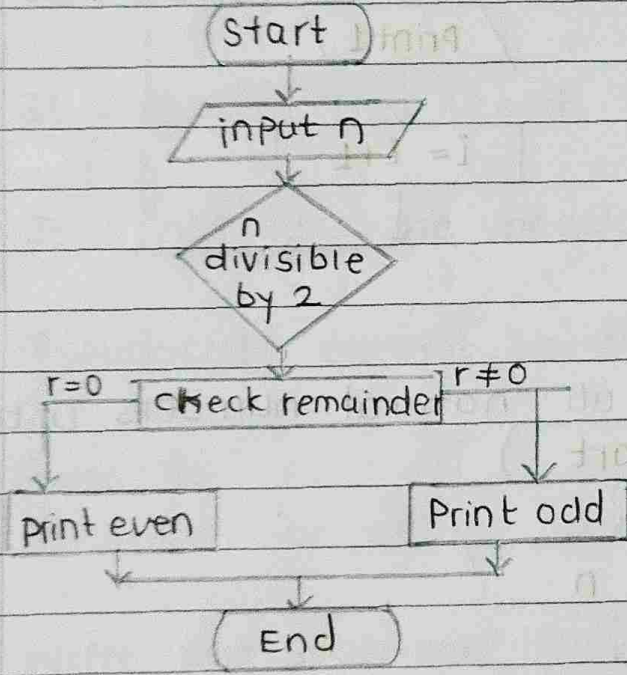 Start
input n
n
divisible
by 2
r=0
check remainder
r≠0
print even
Print odd
End